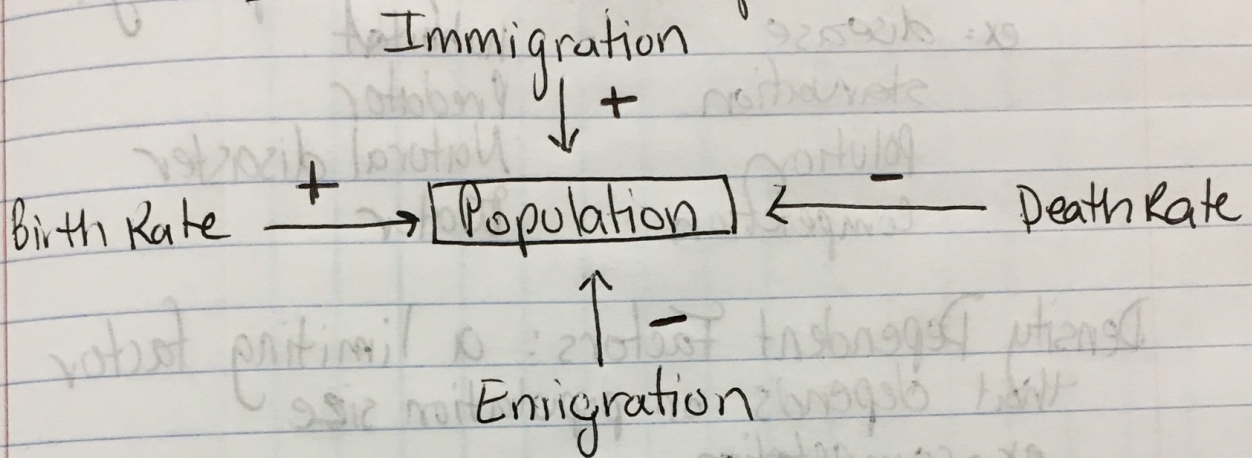 Immigration
+
Birth Rate + Population - Death Rate
-
Emigration